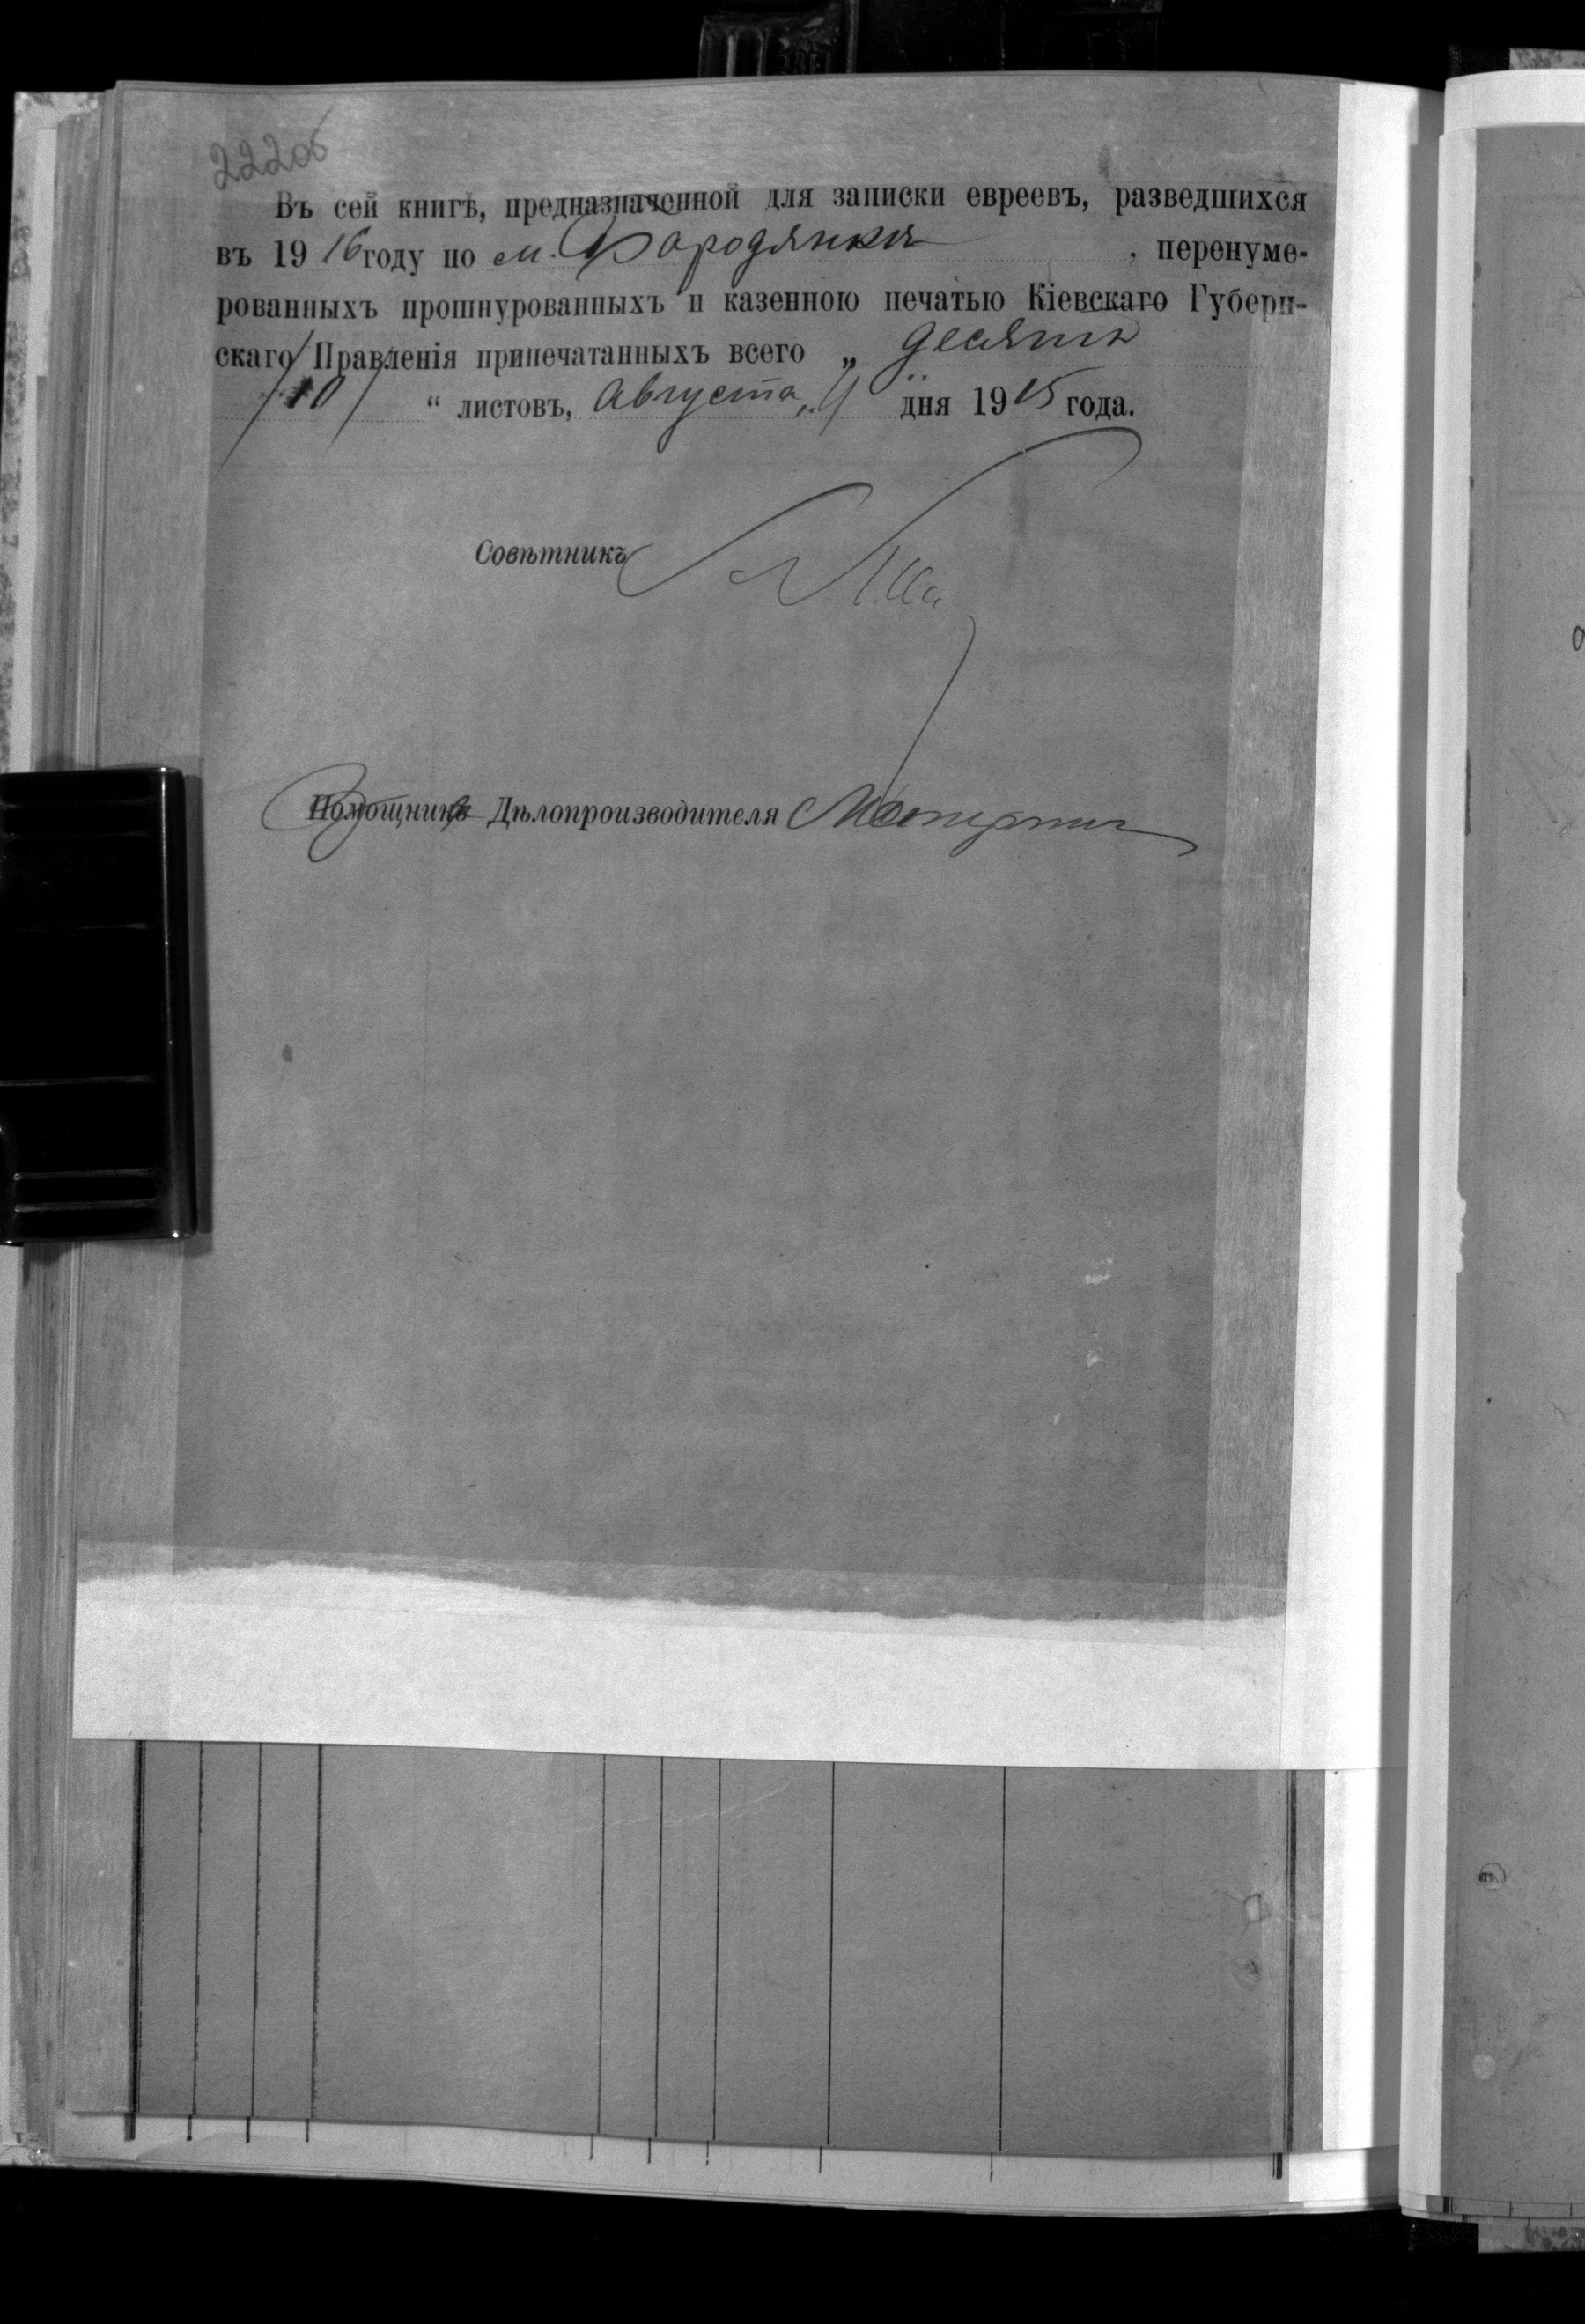 222об
Въ сей книгѣ, предназначенной для записки евреевъ, разведшихся
въ 1916 году по м. Бородянка, перенуме-
рованныхъ прошнурованныхъ и казенною печатью Кіевскаго Губерн-
скаго Правленія припечатанныхъ всего „ десять
/10/ “ листовъ, Августа „4 дня 1915 года.
Совѣтникъ
Помощникъ Дѣлопроизводителя